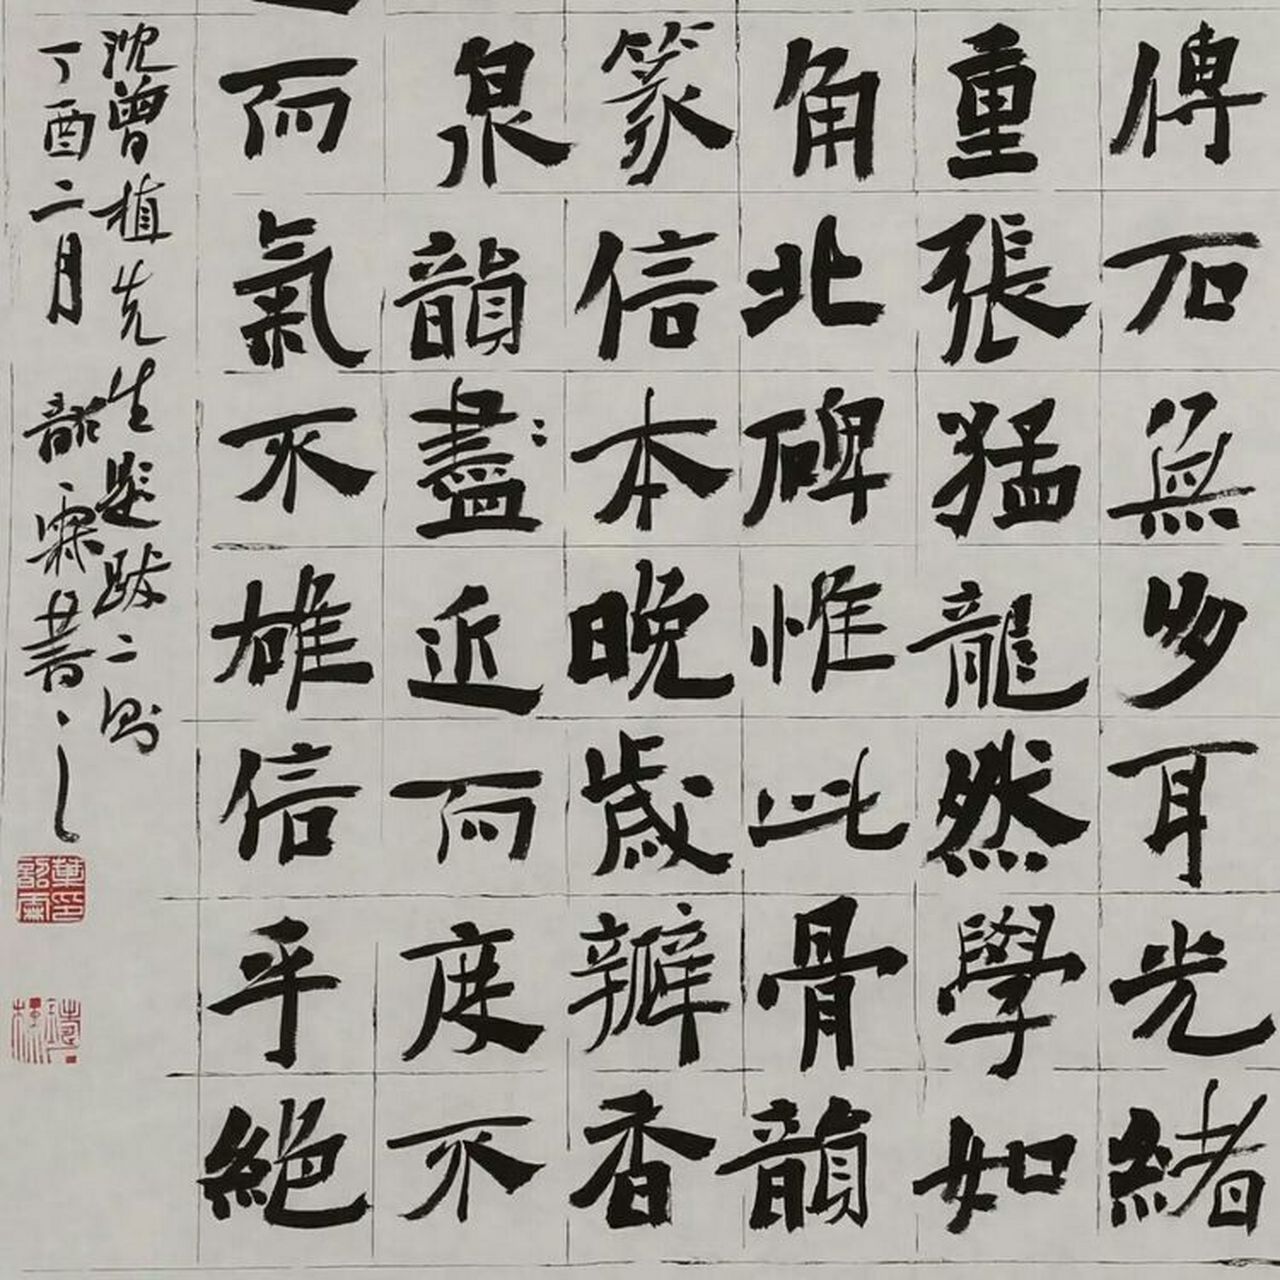 傳石無多耳光緒
重張猛龍然學如
角北碑惟此骨韻
篆信本晚歲瓣香
泉韻盡近而度不
而氣不雄信乎絕
沈曾植先生題跋二則
丁酉二月韶霖書